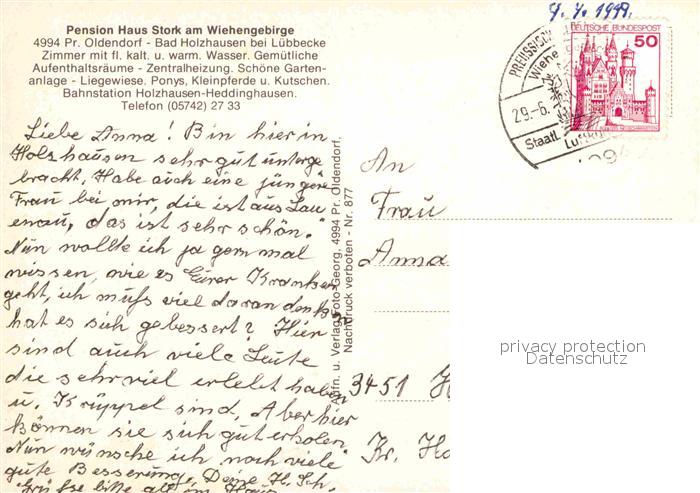 4. 4. 1979.
Pension Haus Stork am Wiehengebirge
4994 Pr. Oldendorf - Bad Holzhausen bei Lübbecke
Zimmer mit fl. kalt. u. warm. Wasser. Gemütliche
Aufenthaltsräume - Zentralheizung. Schöne Garten-
anlage - Liegewiese. Ponys, Kleinpferde u. Kutschen.
Bahnstation Holzhausen-Heddinghausen.
Telefon (05742) 27 33
DEUTSCHE BUNDESPOST
50
PREUSSISCH
Wiehe
29.-6.
Staatl. Luftk
Liebe Anna! Bin hier in
Holzhausen sehr gut unterge
bracht. Habe auch eine jüngere
Frau bei mir, die ist aus Lau
enau, das ist sehr schön.
Nun wollte ich ja gern mal
wissen, wie es Eurer Kranken
geht, ich muß viel daran denken
hat es sich gebessert? Hier
sind auch viele Leute
die sehr viel erlebt haben
u. Krüppel sind, Aber hier
können sie sich gut erholen
Nun wünsche ich noch viele
gute Besserung, Deine H. Sch.
Grüße bitte all im Haus
Aufn. u. Verlag Foto-Georg, 4994 Pr. Oldendorf.
Nachdruck verboten - Nr. 877
An
Frau
Anna
3451 H
Kr. Ho
privacy protection
Datenschutz